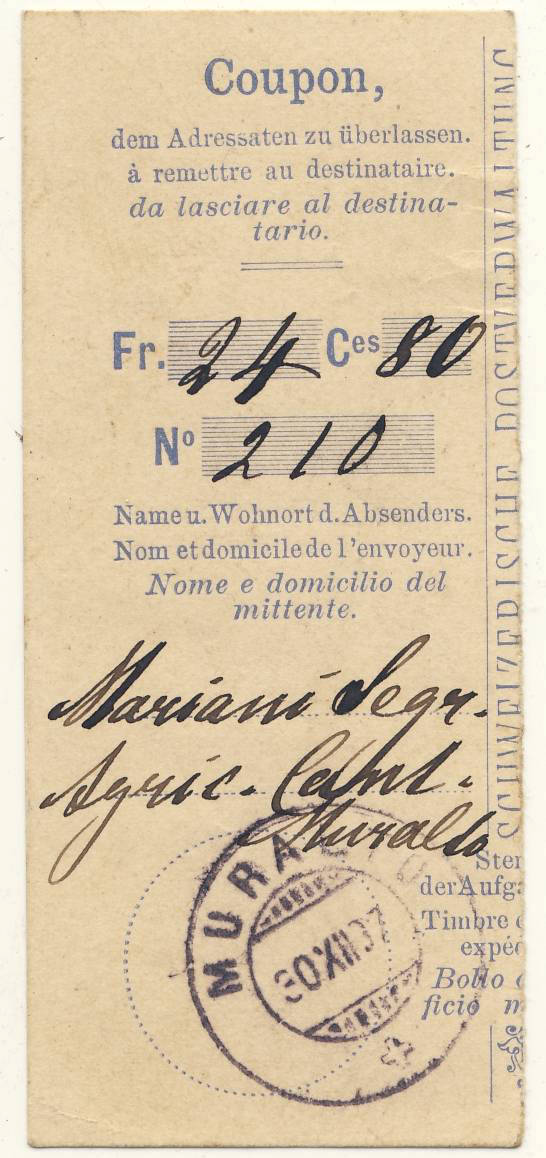 Coupon,
dem Adressaten zu überlassen.
à remettre au destinataire.
da lasciare al destina-
tario.
Fr. 24 Ces 80
No 210
Name u. Wohnort d. Absenders.
Nom et domicile de l'envoyeur.
Nome e domicilio del
mittente.
Mariani Segr.
Agric. Cant.
Muralto
MURALTO
Ster
der Aufga
Timbre
expéd
Bollo
ficio m
SCHWEIZERISCHE POSTVERWALTUNG